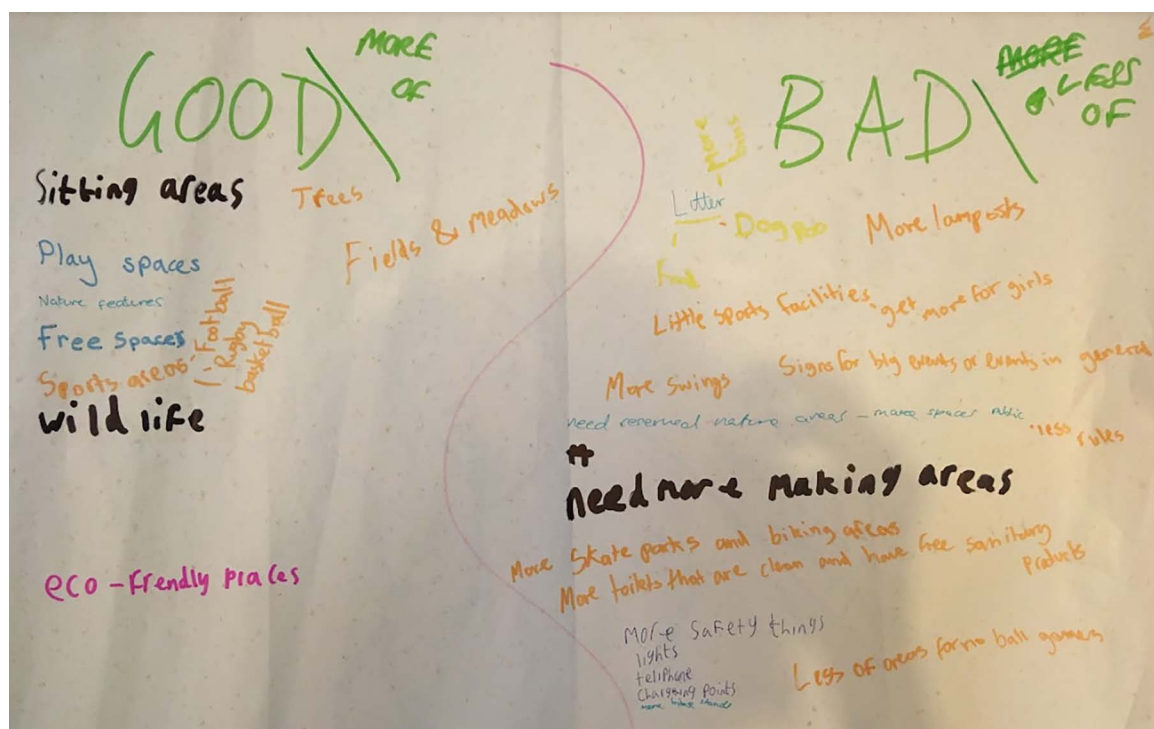 GOOD
MORE
OF
Sitting areas
Trees
Fields & meadows
Play spaces
Nature features
Free spaces
Sports areas
Football
Rugby
basketball
wild life
eco-frendly places
BAD
MORE
LESS
OF
More
Litter
Dog poo
Food
More lamposts
Little sports facilities - get more for girls
Signs for big events or events in general
More swings
need reserved nature areas - make spaces public
less rules
need more making areas
More skate parks and biking areas
More toilets that are clean and have free sanitary
products
More safety things
lights
teliphone
charging points
Less of areas for no ball games